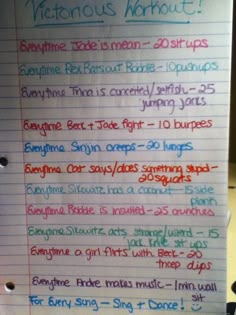 Victorious Workout!
Everytime Jade is mean - 20 sit ups
Everytime Rex Disses out Robbie - 10 pushups
Everytime Trina is conceited/selfish - 25
jumping jacks
Everytime Beck + Jade fight - 10 burpees
Everytime Sinjin creeps - 20 lunges
Everytime Cat says/does something stupid -
20 squats
Everytime Sikowitz has a coconut - 15 side
plank
Everytime Robbie is insulted - 25 crunches
Everytime Sikowitz acts strange/weird - 15
jack knife sit ups
Everytime a girl flirts with Beck - 20
tricep dips
Everytime Andre makes music - 1 min wall
sit
For Every Song - Sing + Dance!